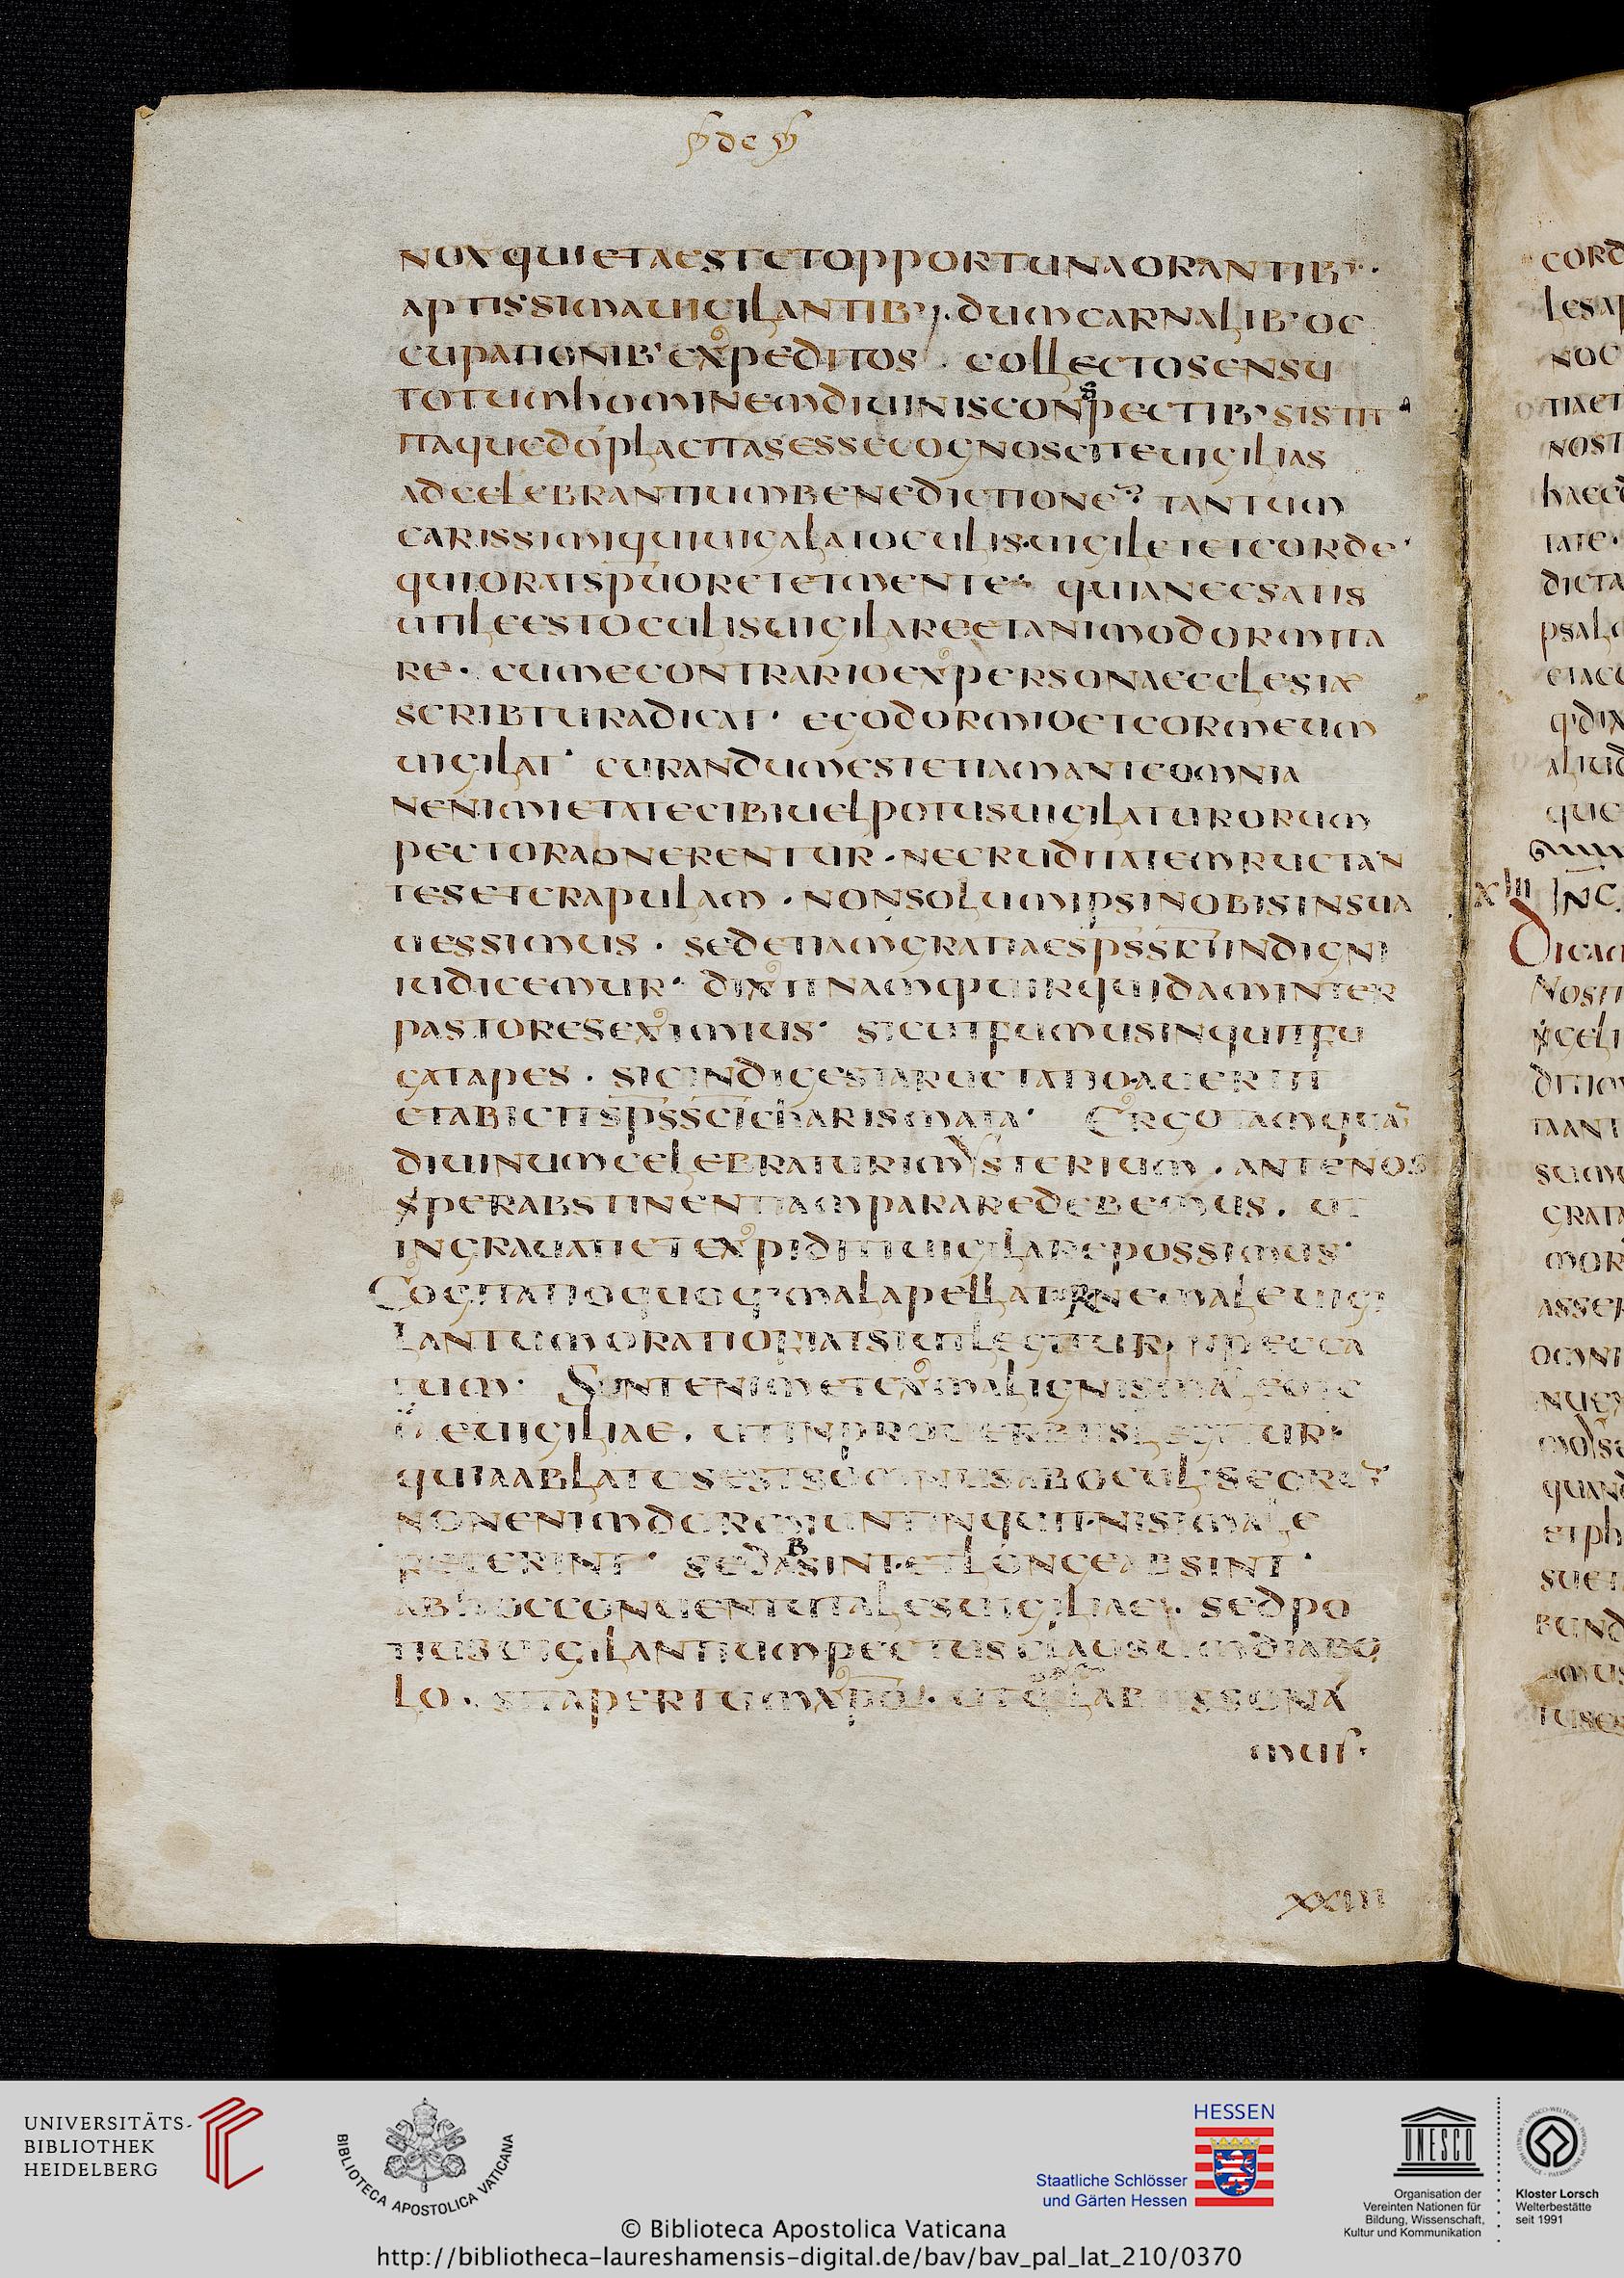 de
nox quieta est et opportuna orantib·
aptissima uigilantib; · dum carnalib' oc
cupationib' expeditos · collecto sensu
totum hominem diuinis conspectib' sistit
itaque dō placitas esse cognoscite uigilias
ad celebrantium benedictione tantum
carissimi qui uigalat oculis · uigilet et corde ·
qui orat spū oret et mente · quia nec satis
utile est oculis uigilare et animo dormita
re · cum e contrario ex persona ecclesiæ
scribtura dicat · ego dormio et cor meum
uigilat · curandum est etiam ante omnia
ne nimietate cibi uel potus uigilaturorum
pectora onerentur · ne cruditatem ructan
tes et crapulam · non solum ipsi nobis insua
uessimus · sed etiam gratiae sps sci indigni
iudicemur · dixit namq uir quidam inter
pastores eximius · sicut fumus inquit fu
gat apes · sic indigesta ructatio auertit
et abicit sps sci charismata · Ergo tamquā
diuinum celebraturi mysterium · ante nos
per abstinentiam parare debemus · ut
ingrauati et expiditi uigilare possimus ·
Cogitatio quoq· mala pellat ne male uigi
lantum oratio fiat sicut legitur in pecca
tum · Sunt enim et ex malignis
e uigiliae · ut in prouerbiis legitur ·
quia ablatus est somnus ab oculis eoru
non enim dormiunt inquit · nisi male
fecerint · sed absint et longe absint ·
ab hoc conuentu tales uigiliae · sed po
tius uigilantium pectus clausum diabo
lo · sit apertum xpo · ut labiis sona
mus ·
xxiiii
cord
les ap
noc
tia et
nost
haec
tate ·
dicta
psal
et ac
q· dix
aliud
que
xliii INC
Dicam
Nostr
sue
Universitäts-
Bibliothek
Heidelberg
Biblioteca Apostolica Vaticana
HESSEN
Staatliche Schlösser
und Gärten Hessen
UNESCO
Organisation der
Vereinten Nationen für
Bildung, Wissenschaft,
Kultur und Kommunikation
Kloster Lorsch
Welterbestätte
seit 1991
© Biblioteca Apostolica Vaticana
http://bibliotheca-laureshamensis-digital.de/bav/bav_pal_lat_210/0370